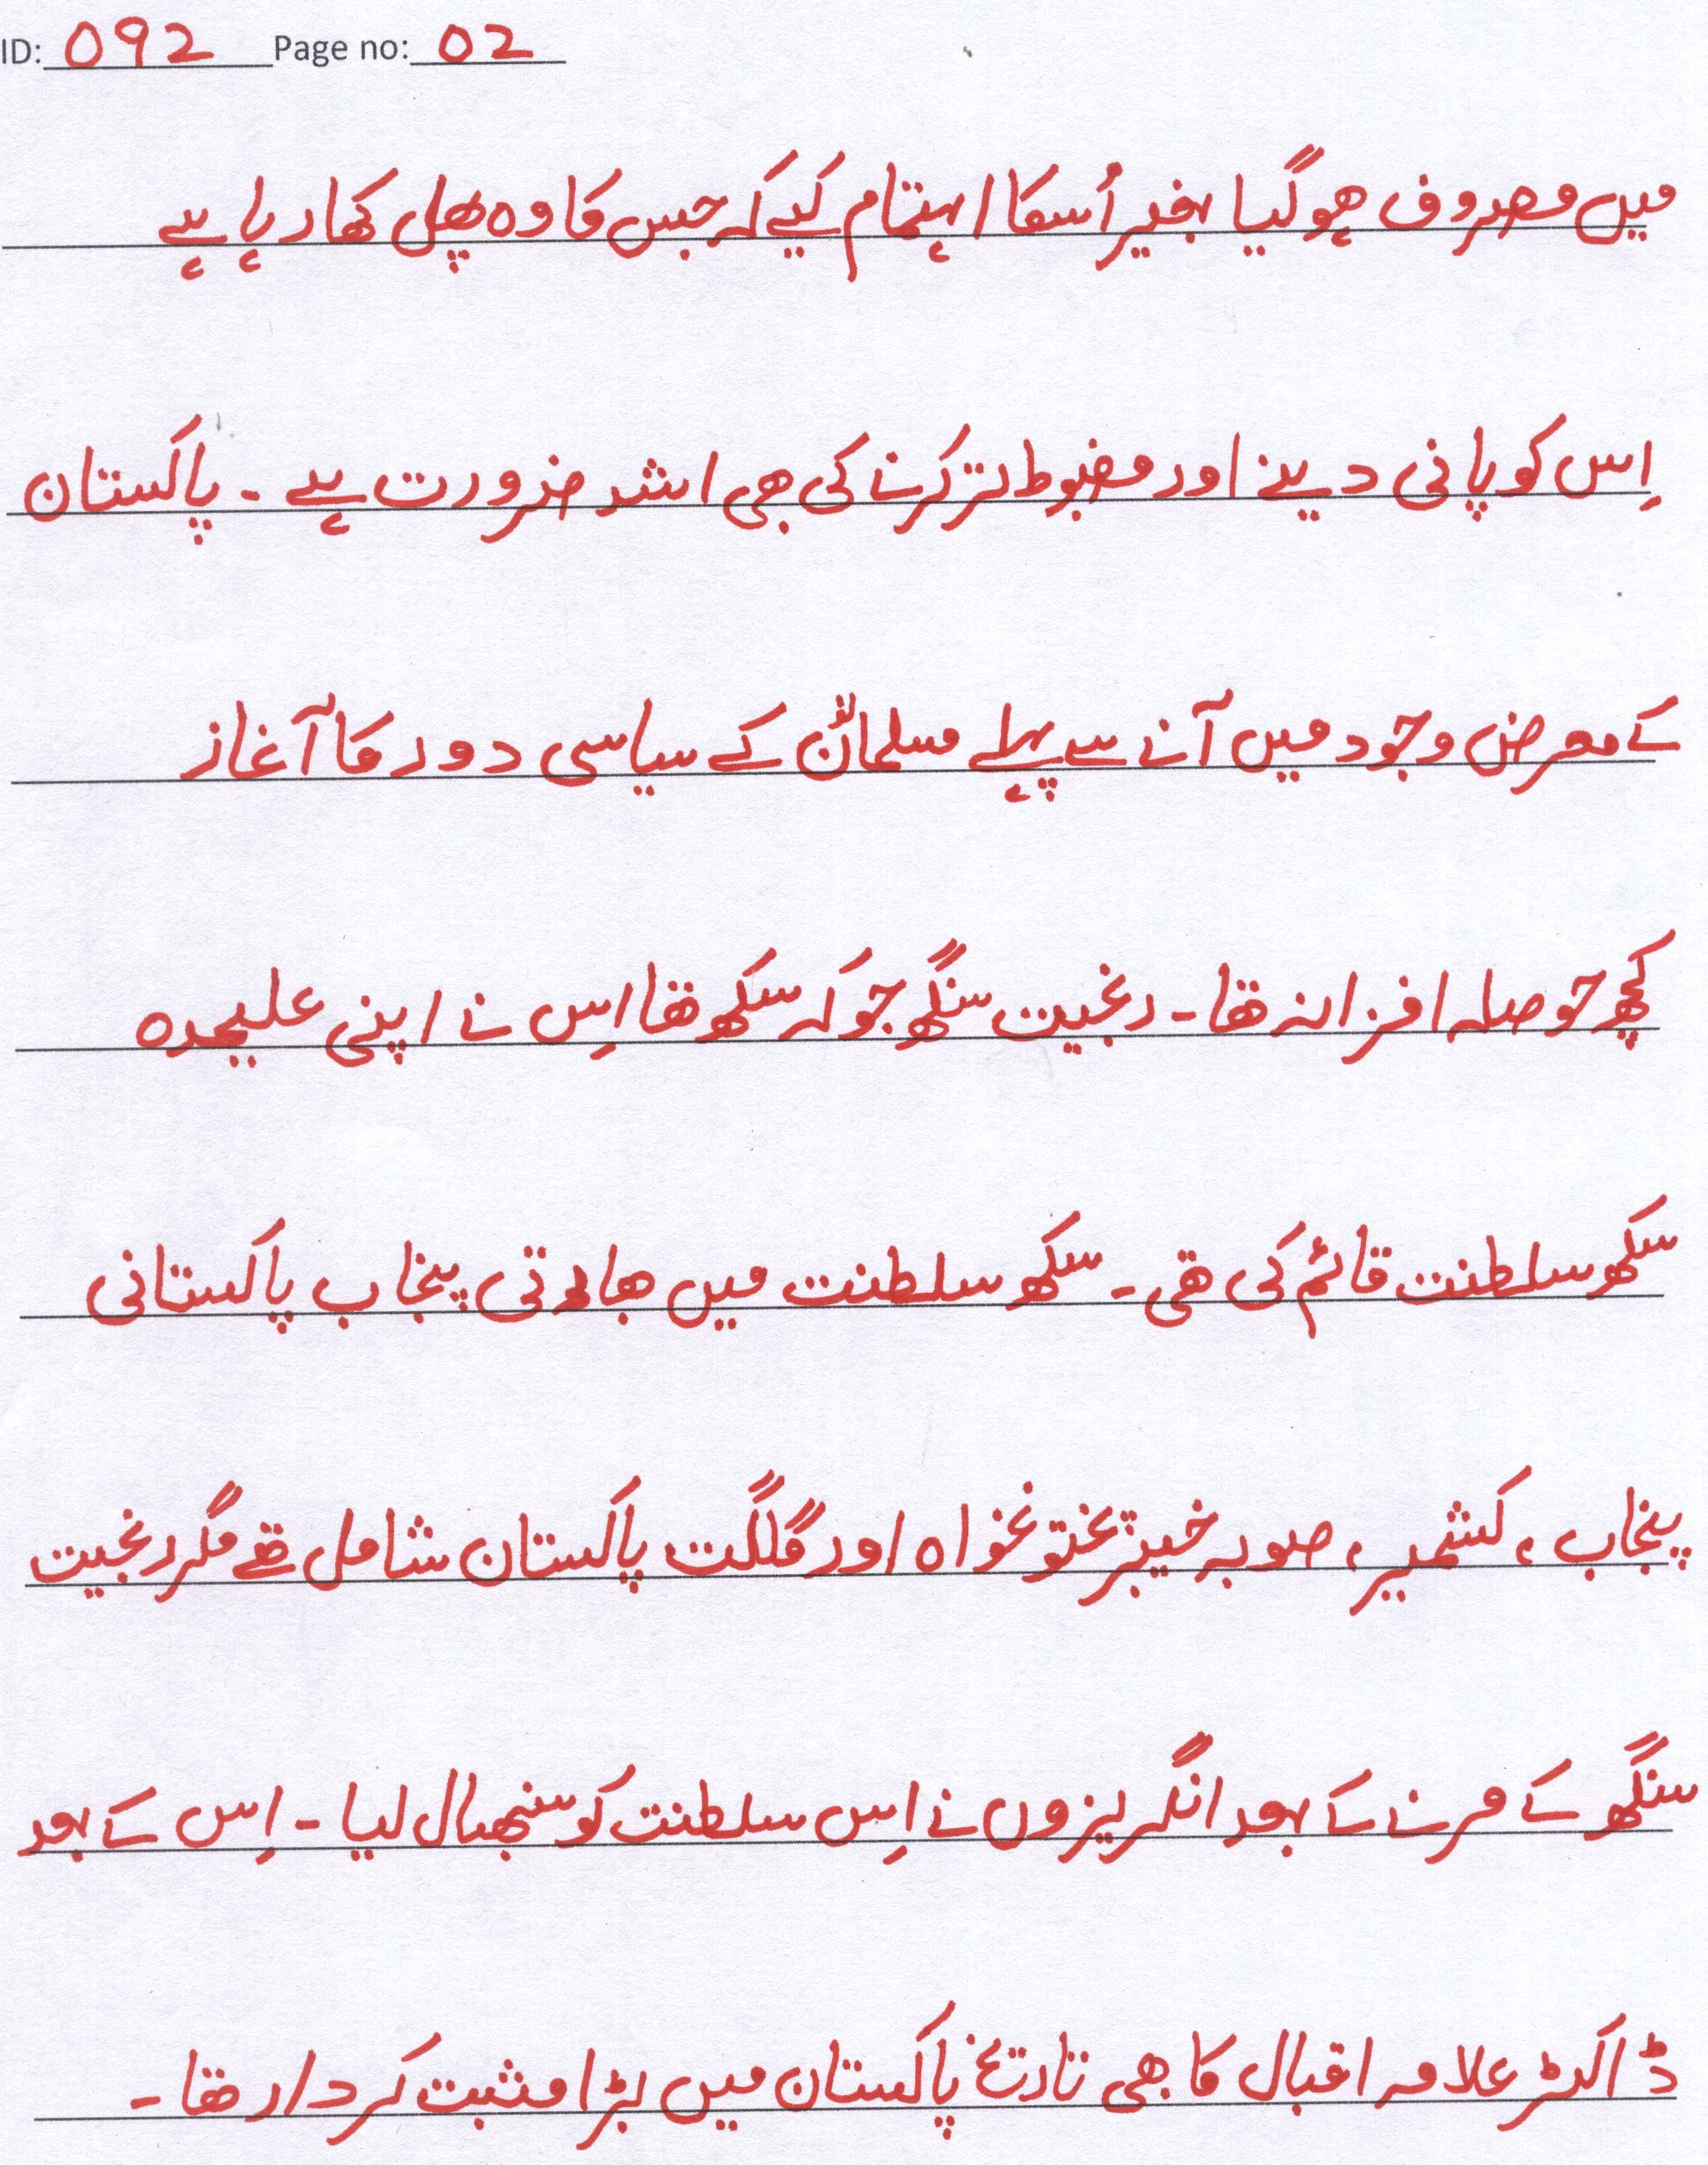 ID: 092 Page no: 02
میں مصروف ہوگیا بغیر اُسکا اہتمام کیے کہ جس کا وہ پھل کھا رہا ہے
اِس کو پانی دینے اور مضبوط تر کرنے کی بھی اشد ضرورت ہے ۔ پاکستان
کے معرض وجود میں آنے سے پہلے مسلمانوں کے سیاسی دور کا آغاز
کچھ حوصلہ افزا نہ تھا ۔ رنجیت سنگھ جو کہ سکھ تھا اِس نے اپنی علیحدہ
سکھ سلطنت قائم کی تھی ۔ سکھ سلطنت میں بھارتی پنجاب پاکستانی
پنجاب ، کشمیر ، صوبہ خیبر پختونخواہ اور گلگت پاکستان شامل تھے مگر رنجیت
سنگھ کے مرنے کے بعد انگریزوں نے اِس سلطنت کو سنبھال لیا ۔ اِس کے بعد
ڈاکٹر علامہ اقبال کا بھی تاریخ پاکستان میں بڑا مثبت کردار تھا ۔